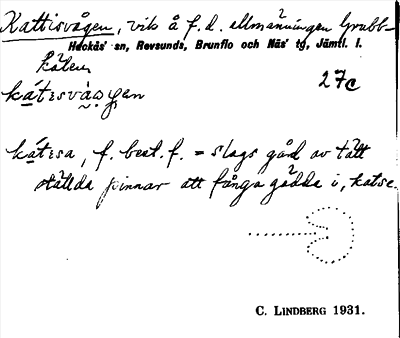 Kattisvågen, vik å f.d. allmänningen Grubb-
Hackås sn, Revsunds, Brunflo och Näs' tg, Jämtl. l.
kälen
27c
kátɪsvåŋen
kátɪsa, f. best. f. = slags gård av tätt
ställda pinnar att fånga gädda i, katse.
C. LINDBERG 1931.